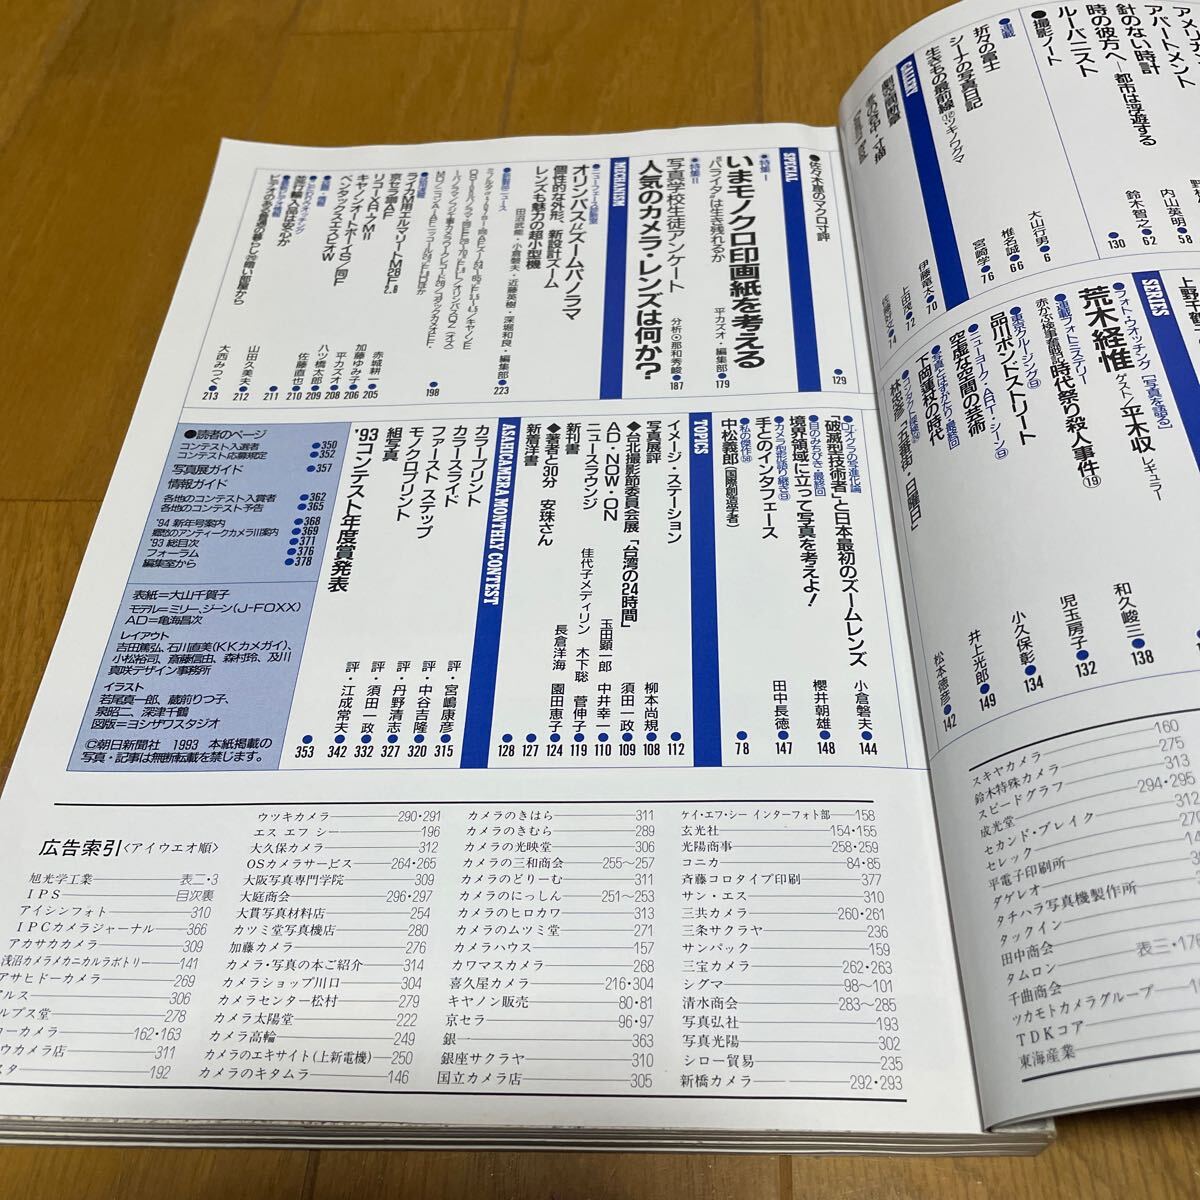 アパートメント
針のない時計
内山英明●58
時の彼方へ―都市は浮遊する
鈴木智之●62
ルーバニスト
●130
●撮影ノート
●連載
折々の富士
大山行男●6
シーナの写真日記
椎名誠●66
生きもの最前線⑫ツキノワグマ
宮崎学●76
GALLERY
劇空間断章
伊藤竜太●70
SERIES
フォト・ウオッチング「写真を語る」
荒木経惟
ゲスト/平木収
レギュラー
●連載フォトミステリー
赤かぶ検事奮戦記 時代祭り殺人事件⑲
和久峻三●138
●東京クルージング⑬
品川ボンドストリート
児玉房子●132
●ニューヨーク・ART・シーン⑬
空虚な空間の芸術
小久保彰●134
●写真とはすがたり・最終回
下岡蓮杖の時代
井上光郎●149
松本徳彦●142
●佐々木崑のマクロ寸評
●129
SPECIAL
●特集Ⅰ
いまモノクロ印画紙を考える
“バライタ”は生き残れるか
平カズオ・編集部●179
●特集Ⅱ
写真学校生徒アンケート
人気のカメラ・レンズは何か?
分析◎那和秀峻●187
MECHANISM
●ニューフェース診断室
オリンパスL“ズームパノラマ
個性的な外形、新設計ズーム
レンズも魅力の超小型機
田沼武能・小倉磐夫・近藤英樹・深堀和良・編集部●223
●新製品ニュース
●198
●試用速報
ライカM用エルマリートM28F2.8
赤城耕一●205
京セラ・AF
加藤ゆみ子●206
平カズオ●208
ペンタックスエスピオW
八ツ橋太郎●209
並行輸入品は安心か
佐藤直也●210
●211
山田久美夫●212
大西みつぐ●213
●Dr.オグラの写進化論
「破滅型技術者」と日本最初のズームレンズ
小倉磐夫●144
●目のみちびき・最終回
境界領域に立って写真を考えよ!
櫻井朝雄●148
●カメラ型形語り継ぎ⑬
手とのインタフェース
田中長徳●147
●私の傑作
中松義郎(国際創造学者)
●78
TOPICS
イメージ・ステーション
●112
写真展評
柳本尚規●108
◆台北撮影節委員会展「台湾の24時間」
須田一政●109
AD・NOW・ON
玉田顕一郎 中井幸一●110
ニュースラウンジ
佳代子メディリン 木下聡 菅伸子●119
新刊書
長倉洋海●124
◆著者と30分 安珠さん
園田恵子●127
新着洋書
●128
ASAHICAMERA MONTHLY CONTEST
カラープリント
評・宮嶋康彦●315
カラースライド
評・中谷吉隆●320
ファースト ステップ
評・丹野清志●327
モノクロプリント
評・須田一政●332
組写真
評・江成常夫●342
'93コンテスト年度賞発表
●353
●読者のページ
コンテスト入選者●350
コンテスト応募規定●352
写真展ガイド●357
情報ガイド
各地のコンテスト入賞者●362
各地のコンテスト予告●365
'94新年号案内●368
郷愁のアンティークカメラⅢ案内●369
'93総目次●371
フォーラム●376
編集室から●378
表紙=大山千賀子
モデル=ミリー、ジーン(J-FOXX)
AD=亀海昌次
レイアウト
吉田篤弘、石川直美(KKカメガイ)、
小松裕司、斎藤信由、森村玲、及川
真咲デザイン事務所
イラスト
若尾真一郎、蔵前りつ子、
泉昭二、深津千鶴
図版=ヨシザワスタジオ
©朝日新聞社 1993 本紙掲載の
写真・記事は無断転載を禁じます。
広告索引〈アイウエオ順〉
旭光学工業――表二・3
IPS――目次裏
アイシンフォト――310
IPCカメラジャーナル――366
アカサカカメラ――309
浅沼カメラメカニカルラボトリー――141
アサヒドーカメラ――269
アルス――306
ルプス堂――278
ーカメラ――162・163
ウカメラ店――311
スタ――192
ウツキカメラ――290・291
エス エフ シー――196
大久保カメラ――312
OSカメラサービス――264・265
大阪写真専門学院――309
大庭商会――296・297
大貫写真材料店――254
カツミ堂写真機店――280
加藤カメラ――276
カメラ・写真の本ご紹介――314
カメラショップ川口――304
カメラセンター松村――279
カメラ太陽堂――222
カメラ高輪――249
カメラのエキサイト(上新電機)――250
カメラのキタムラ――146
カメラのきはら――311
カメラのきむら――289
カメラの光映堂――306
カメラの三和商会――255~257
カメラのどりーむ――311
カメラのにっしん――251~253
カメラのヒロカワ――313
カメラのムツミ堂――271
カメラハウス――157
カワマスカメラ――268
喜久屋カメラ――216・304
キヤノン販売――80・81
京セラ――96・97
銀一――363
銀座サクラヤ――310
国立カメラ店――305
ケイ・エフ・シー インターフォト部――158
玄光社――154・155
光陽商事――258・259
コニカ――84・85
斉藤コロタイプ印刷――377
サン・エス――310
三共カメラ――260・261
三条サクラヤ――236
サンパック――159
三宝カメラ――262・263
シグマ――98~101
清水商会――283~285
写真弘社――193
写真光陽――302
シロー貿易――235
新橋カメラ――292・293
スキヤカメラ――160
鈴木特殊カメラ――275
スピードグラフ――313
成光堂――294・295
セカンド・ブレイク――312
セレック――270
平電子印刷所
ダゲレオ
タチハラ写真機製作所
タックイン
田中商会
タムロン――表三・176
千曲商会
ツカモトカメラグループ
TDKコア
東海産業